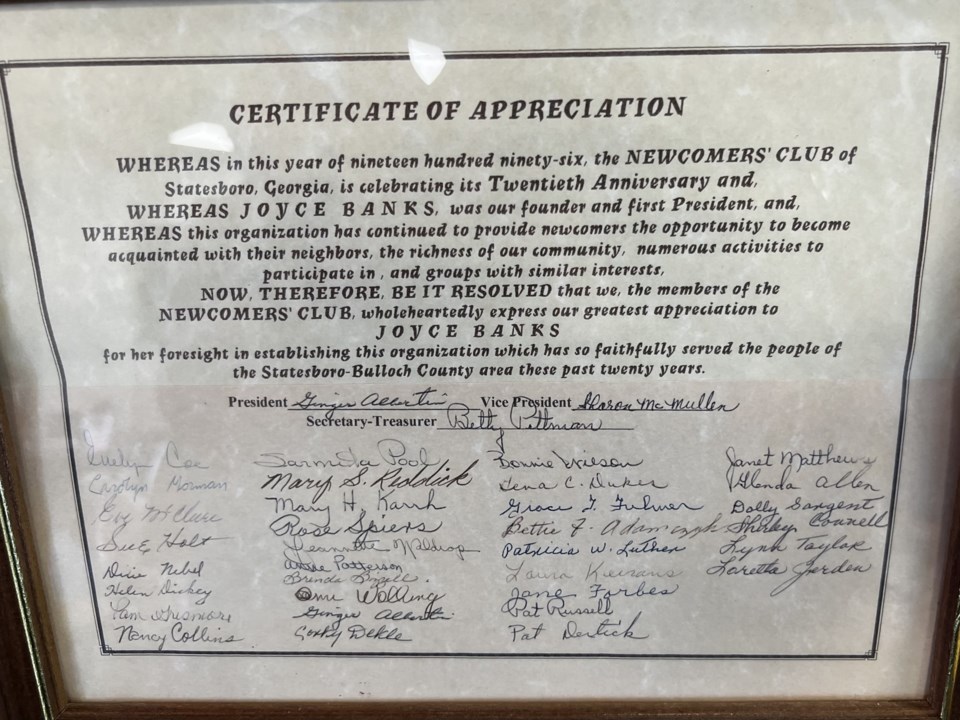 CERTIFICATE OF APPRECIATION
WHEREAS in this year of nineteen hundred ninety-six, the NEWCOMERS' CLUB of
Statesboro, Georgia, is celebrating its Twentieth Anniversary and,
WHEREAS JOYCE BANKS, was our founder and first President, and,
WHEREAS this organization has continued to provide newcomers the opportunity to become
acquainted with their neighbors, the richness of our community, numerous activities to
participate in , and groups with similar interests,
NOW, THEREFORE, BE IT RESOLVED that we, the members of the
NEWCOMERS' CLUB, wholeheartedly express our greatest appreciation to
JOYCE BANKS
for her foresight in establishing this organization which has so faithfully served the people of
the Statesboro-Bulloch County area these past twenty years.
President Ginger Vice President Sharon McMullen
Secretary-Treasurer Betty Pittman
Evelyn Coe
Carolyn Morman
Eve McClure
Sue Holt
Dixie Nebel
Helen Dickey
Pam
Nancy Collins
Pool
Mary S.
Mary H. Karrh
Rose Spiers
Jeannette Waldrop
Patterson
Brenda
Walling
Ginger
Dekle
Bonnie Wilson
Lena C. Dukes
Grace T. Fulmer
Bettie F. Adamczyk
Patricia W. Luther
Laura
Jane Forbes
Pat Russell
Pat
Janet Matthews
Glenda Allen
Dolly Sargent
Shirley Connell
Lynn Taylor
Loretta Jorden